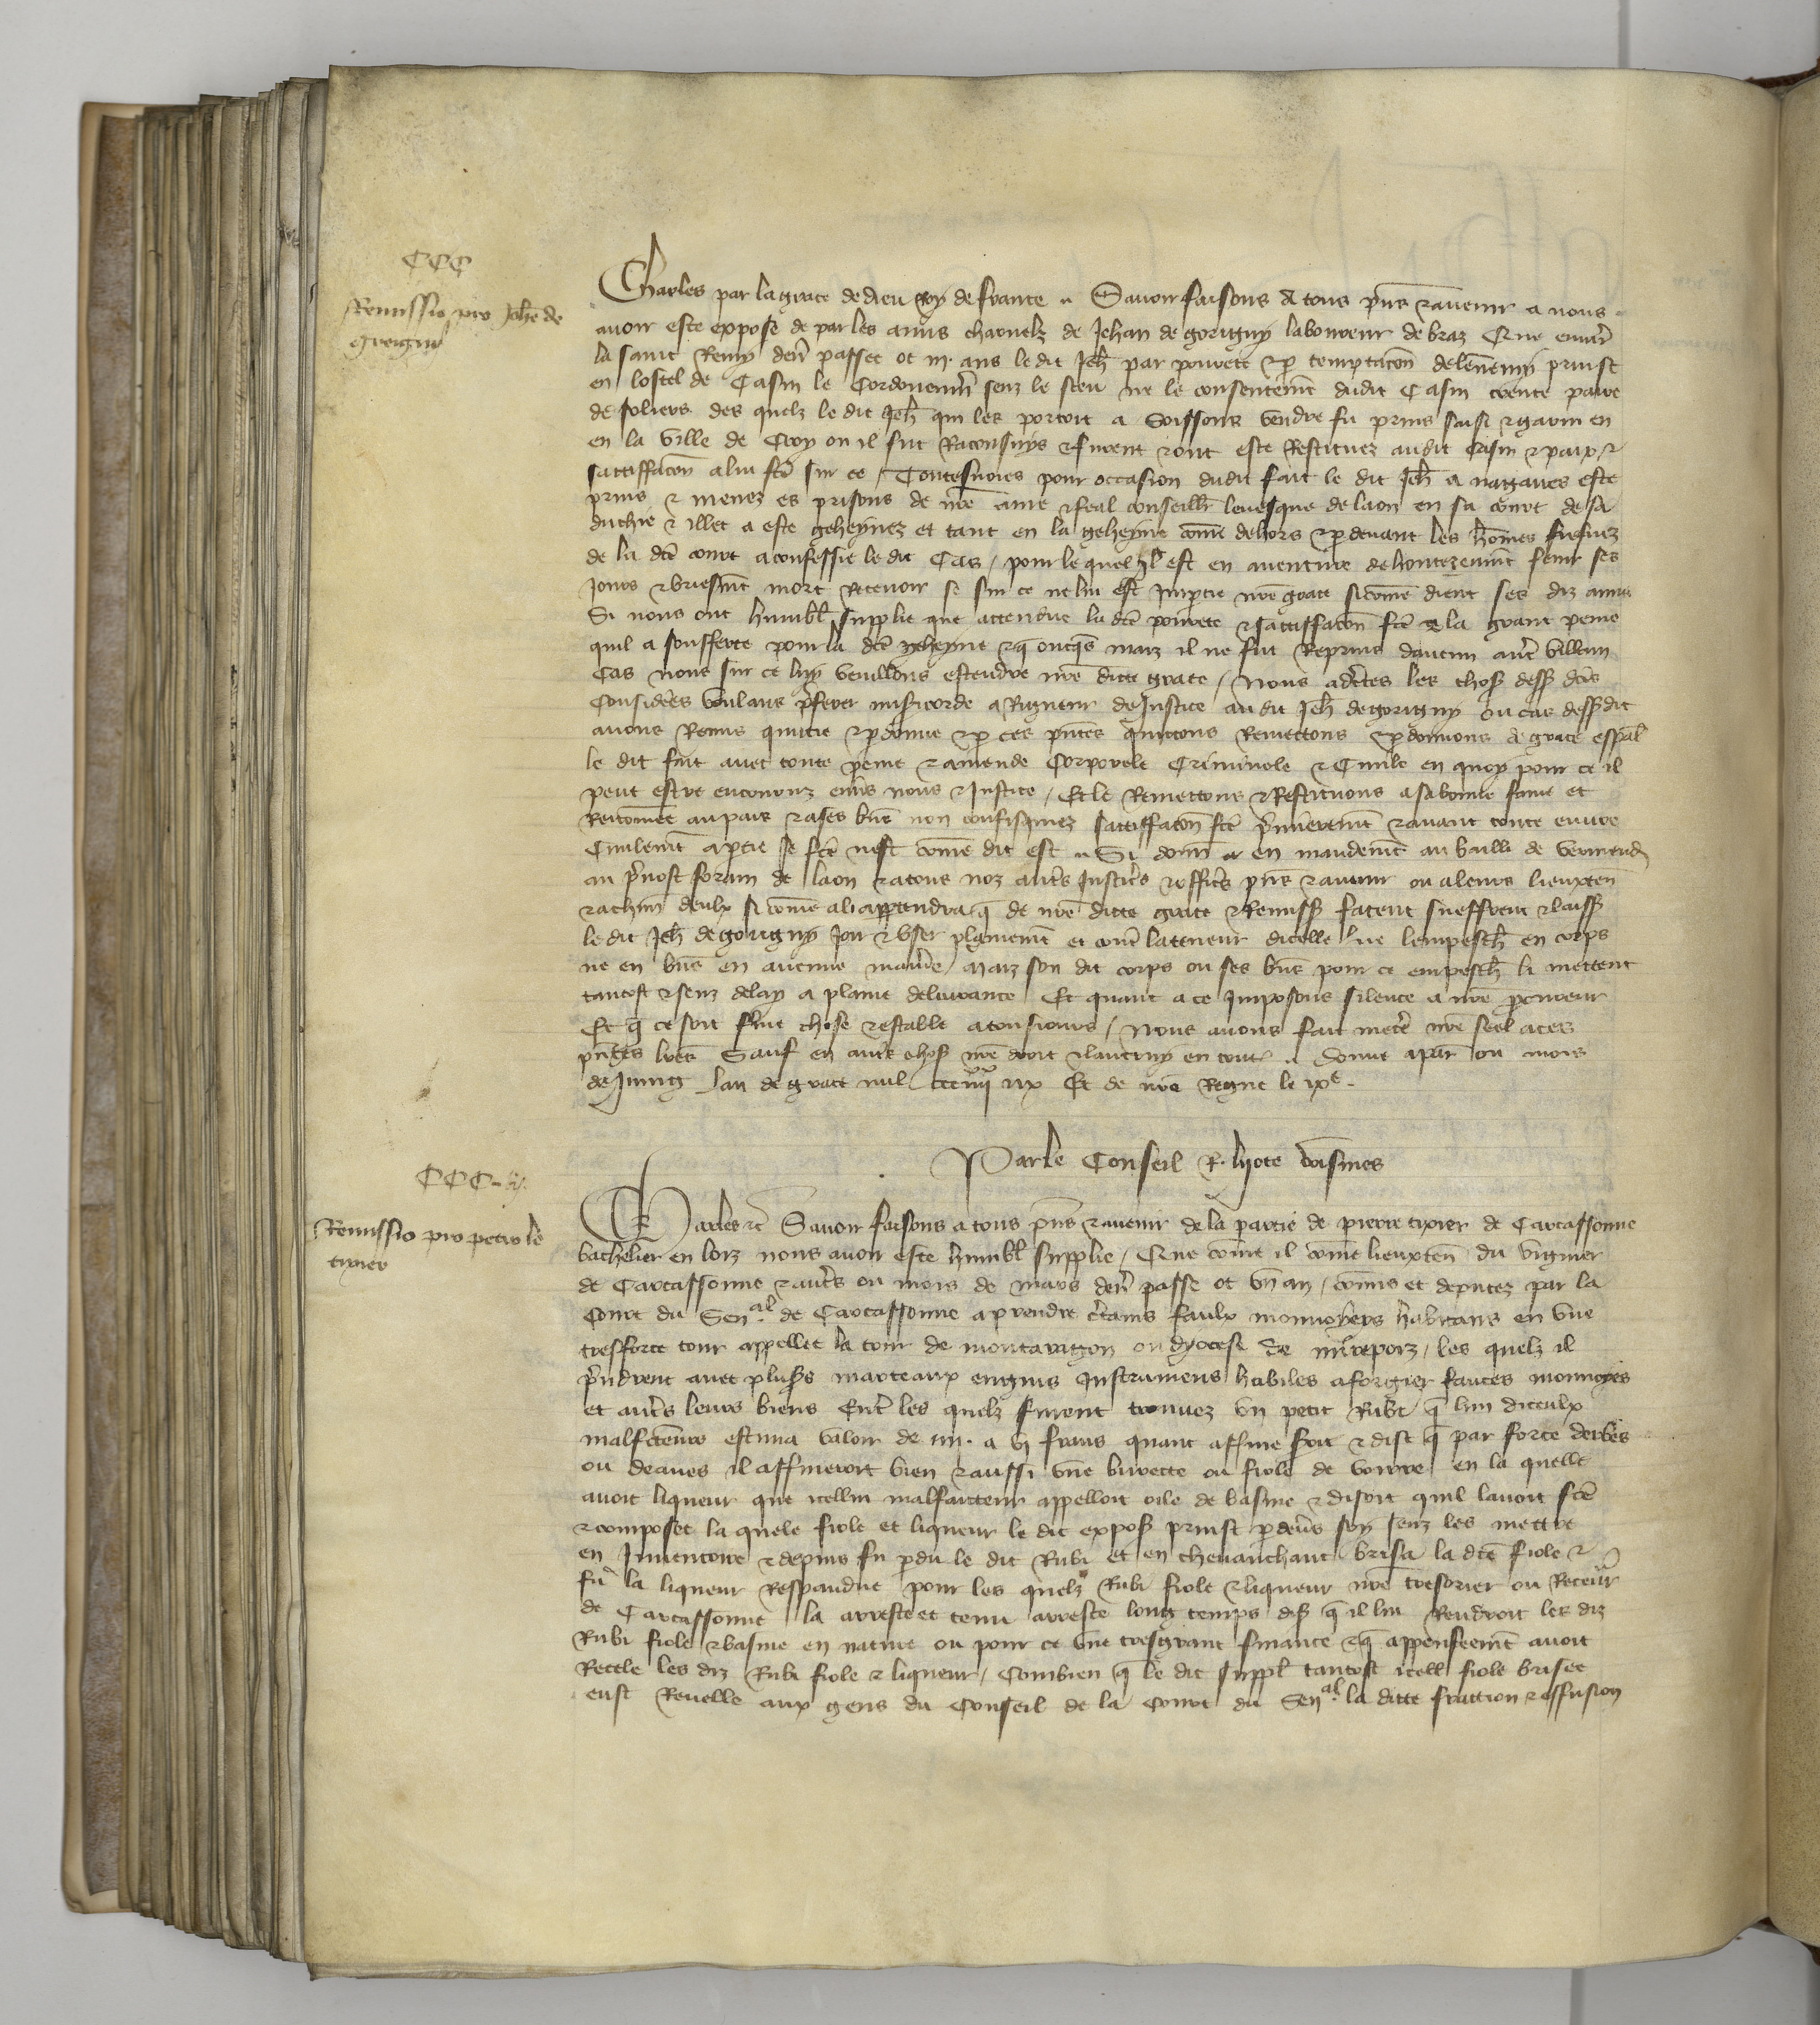 CCC
Remissio pro Johe de
gorgny
Charles par la grace de dieu Roy de france .. Savoir faisons A tous pns & avenir a nous
avoir este expose de par les amis charnelz de Jehan de gorigny laboureur de braz Que envir
la saint Remy derr passee ot III ans le dit Jeh par povrete & p temptacon de lennemy prinst
en lostel de Casin le Cordouennir senz le sceu ne le consentemt dudit Casin trente paire
de soliers des quelz le dit Jeh qui les portoit a Soissons vendre fu prins saisi & garni en
en la ville de Croy ou il fut Raconsuys & furent & ont este Restituez au dit Casin & paix &
sattiffacon a lui fte sur ce / Toutesvoies pour occasion dudit fait le dit Jeh A nagaires este
prins & menez es prisons de nre ame & feal conseillr levesque de laon en sa court de sa
duchie & illec a este geheynez et tant en la geheyne come dehors & p devant les homes Jugans
de la dte court a confessie le dit Cas / pour le quel Jl est en aventure de hontezemt fenir ses
Jours & briesmt mort Recevoir se sur ce ne lui est Jmptie nre grace sicome dient ses diz amis
Si nous ont humbl supplie que attendue la dte povrete & sattiffacon fte & la grant peine
quil a soufferte pour la dte geheyne & q onqs maiz il ne fut Reprins daucun autr villain
Cas nous sur ce luy veuillons estendre nre ditte grace / Nous adctes les chos dess dtes
Considrees voulans pferer misicorde a Rigueur de Justice au dit Jeh de gorigny ou cas dessdit
avons Remis quictie & pdonne & p ces pntes quittons Remettons & pdonnons de grace espal
le dit fait avec toute peine & amende Corporele Criminele & Civile en quoy pour ce il
peut estre encouruz envs nous & Justice / Et le Remettons & Restituons a sa bonne fame et
Renomee au pais & a ses bns non confisquez sattiffacon fte pmieremt & avant toute euvre
Civilemt a ptie se fte nest come dit est .. Si donn & en mandemt au bailli de vermend
au prevost forain de laon & a tous noz autrs Justicrs & officrs pns & avenir ou a leurs lieuxten
& a chun deulx si come a li appartendra q de nre ditte grace & Remiss facent sueffrent & laiss
le dit Jeh de gorigny Joir & user plainemt et contr la teneur dicelle ne lempesch en corps
ne en bns en aucune maniere / maiz son dit corps ou ses bns pour ce empesch li mettent
tantost & senz delay a plaine delivrance Et quant a ce Imposons silence a nre procureur
Et q ce soit ferme chose & estable a tousiours / Nous avons fait mettr nre seel a ces
pntes lres Sauf en autrs chos nre droit & lautruy en tout .. Donne a par ou mois
de Juing lan de grace mil CCC IIII XX IX Et de nre Regne le IXe .
Par le Conseil R. lyote Voismes
CCC-i.
Remissio pro petro le
tixier
Charles &c Savoir faisons a tous pns & avenir de la partie de pierre tixier de Carcassonne
bachelier en loiz nous avoir este humbl supplie / Que come il come lieuxten du viguier
de Carcassonne & autrs ou mois de mars derr passe ot un an / comis et deputez par la
Court du Senal de Carcassonne a prendre crtains faulx monnoyers habitans en une
tresforte tour appellee la tour de montaragon ou dyocese de mirepoiz / les quelz il
prindrent avec plusrs marteaux engins Instrumens habiles a forgier fauces monnoyes
et autrs leurs biens Entr les quelz furent trouvez un petit Rubi q lun diceulx
malfcteurs estima valoir de IIII a VI frans quant affine soit & dist q par force derbes
ou deaues il affineroit bien & aussi une burecte ou fiole de voirre en la quelle
avoit liqueur que icellui malfaitteur appelloit oile de basme & disoit quil lavoit fte
& composee la quele fiole et liqueur le dit expos prinst p devrs soy senz les mettre
en Inventoire & depuis fu perdu le dit Rubi et en chevauchant brisa la dte fiole &
fu la liqueur Respandue pour les quelz Rubi fiole & liqueur nre tresorier ou Receveur
de Carcassonne la arreste et tenu arreste long temps dis q il lui Rendroit les diz
Rubi fiole & basme en nature ou pour ce une tresgrant finance & q appenseemt avoit
Recele les diz Rubi fiole & liqueur / Combien q le dit suppl tantost icelle fiole brisee
eust Revelle aux gens du Conseil de la Court du Senal la ditte fraction & effusion